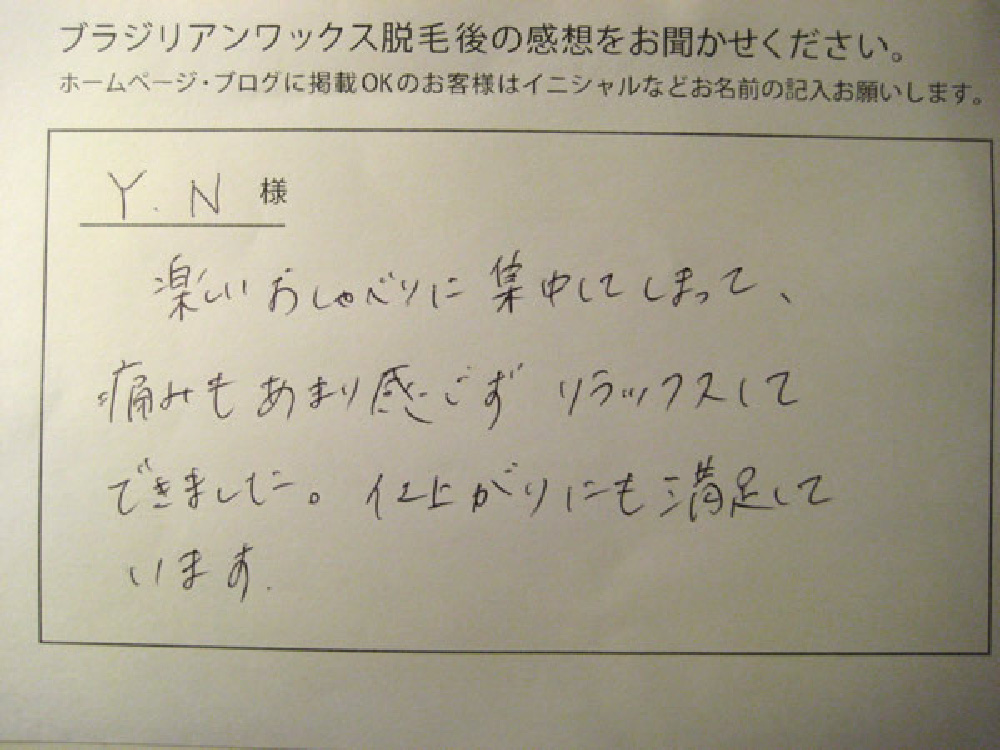 ブラジリアンワックス脱毛後の感想をお聞かせください。
ホームページ・ブログに掲載OKのお客様はイニシャルなどお名前の記入お願いします。
Y.N 様
楽しいおしゃべりに集中してしまって、
痛みもあまり感じず リラックスして
できました。仕上がりにも満足して
います.